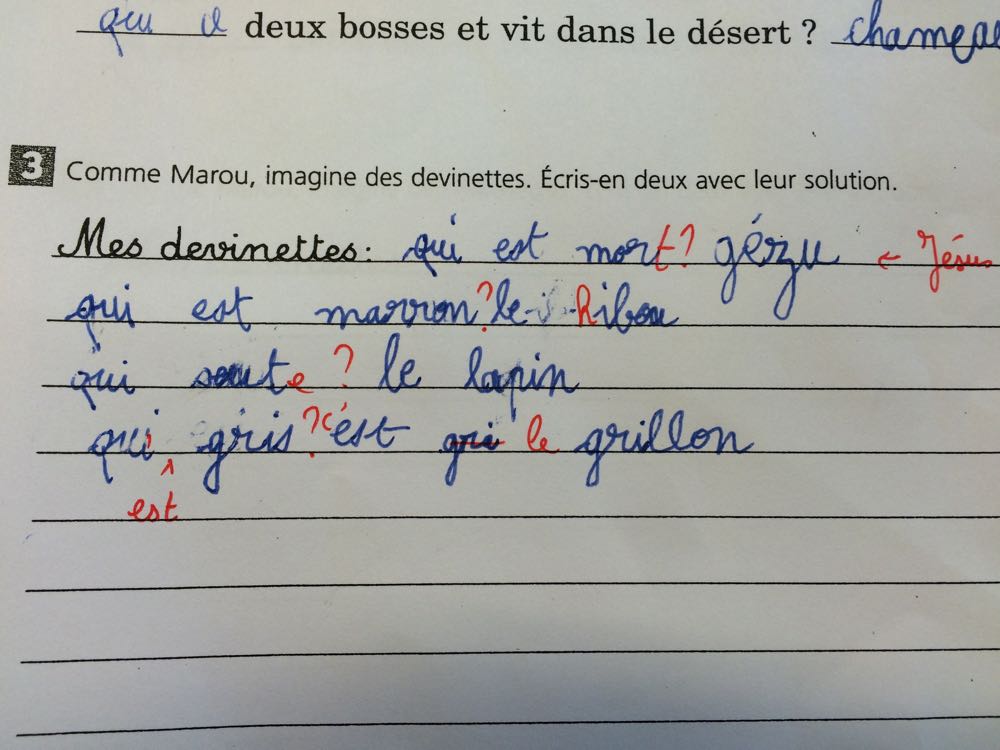 qui a deux bosses et vit dans le désert ? chameau
3 Comme Marou, imagine des devinettes. Écris-en deux avec leur solution.
Mes devinettes: qui est mort? gézu ← Jésus
qui est marron? le hibou
qui saute? le lapin
qui gris? c'est gri le grillon
est